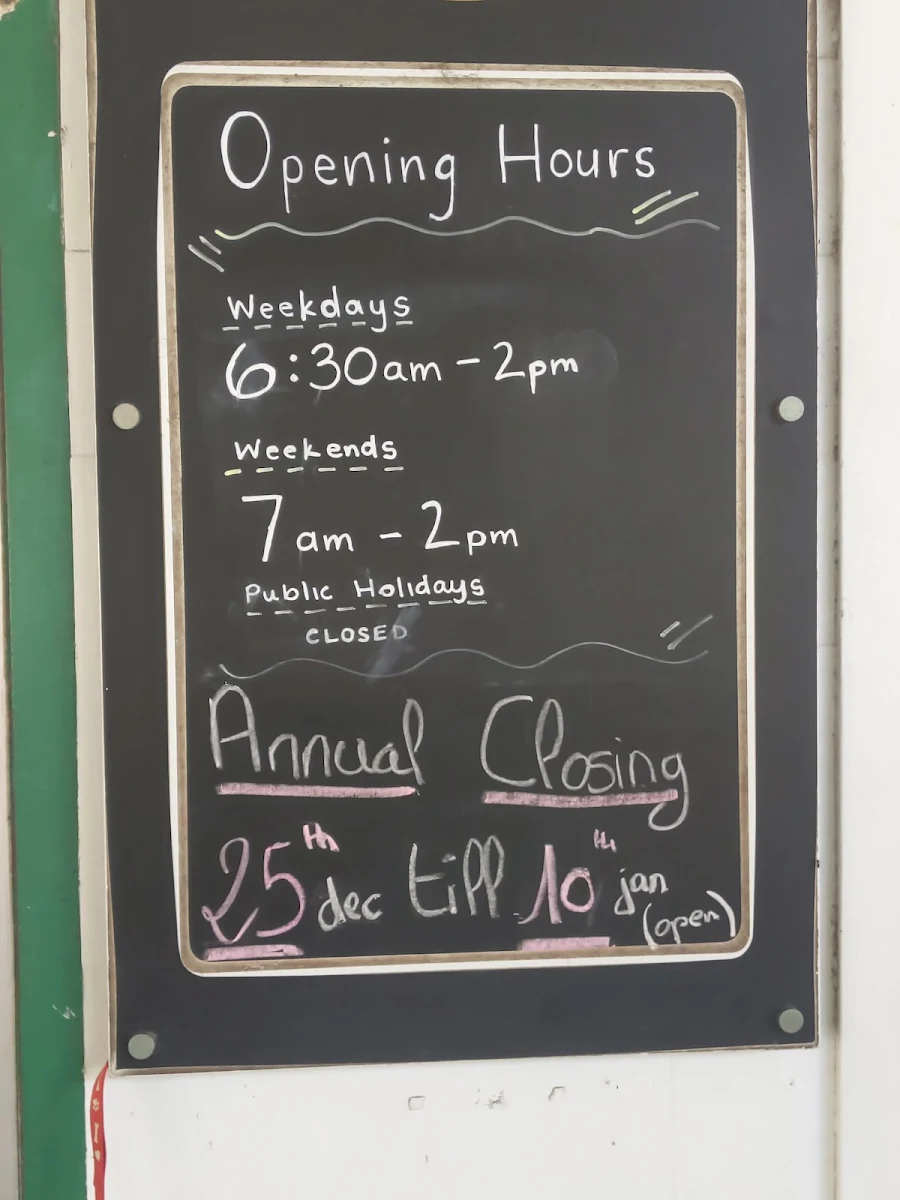 Opening Hours
Weekdays
6:30am - 2pm
Weekends
7am - 2pm
Public Holidays
CLOSED
Annual Closing
25th dec till 10th jan
(open)